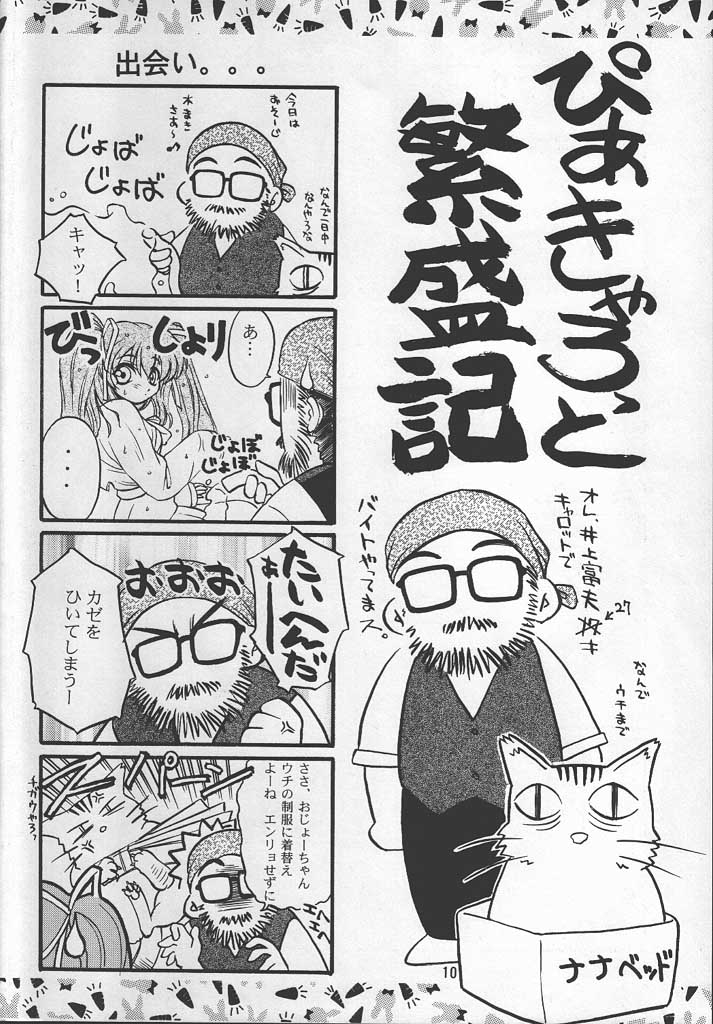 ぴあきゃろっと
繁盛記
オレ、井上富夫 27才
キャロットで
バイトやってまス。
なんで
ウチまで
ナナベッド
10
出会い。。。
今日は
あそーじ
水まき
さあ〜♪
なんで一日中
なんやろな
じょば
じょば
キャッ!
あ…
じょり
びっ
じょぼ
じょぼ
・・・
たいへんだ
あーー
おおお
カゼを
ひいてしまうー
スパーン
ささ、おじょーちゃん
ウチの制服に着替え
よーね エンリョせずに
エヘ
エヘ
チガウやろ